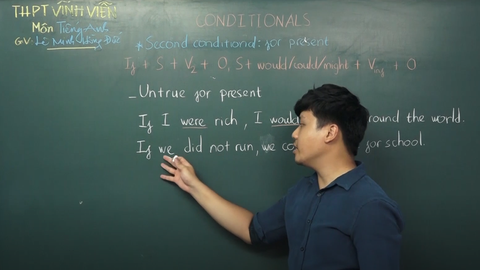 THPT VĨNH VIỄN
CONDITIONALS
Môn Tiếng Anh
GV: Lê Minh
* Second conditional: for present
If + S + V2 + O, S + would/could/might + Vinf + O
_ Untrue for present
If I were rich, I round the world.
If we did not run, we for school.